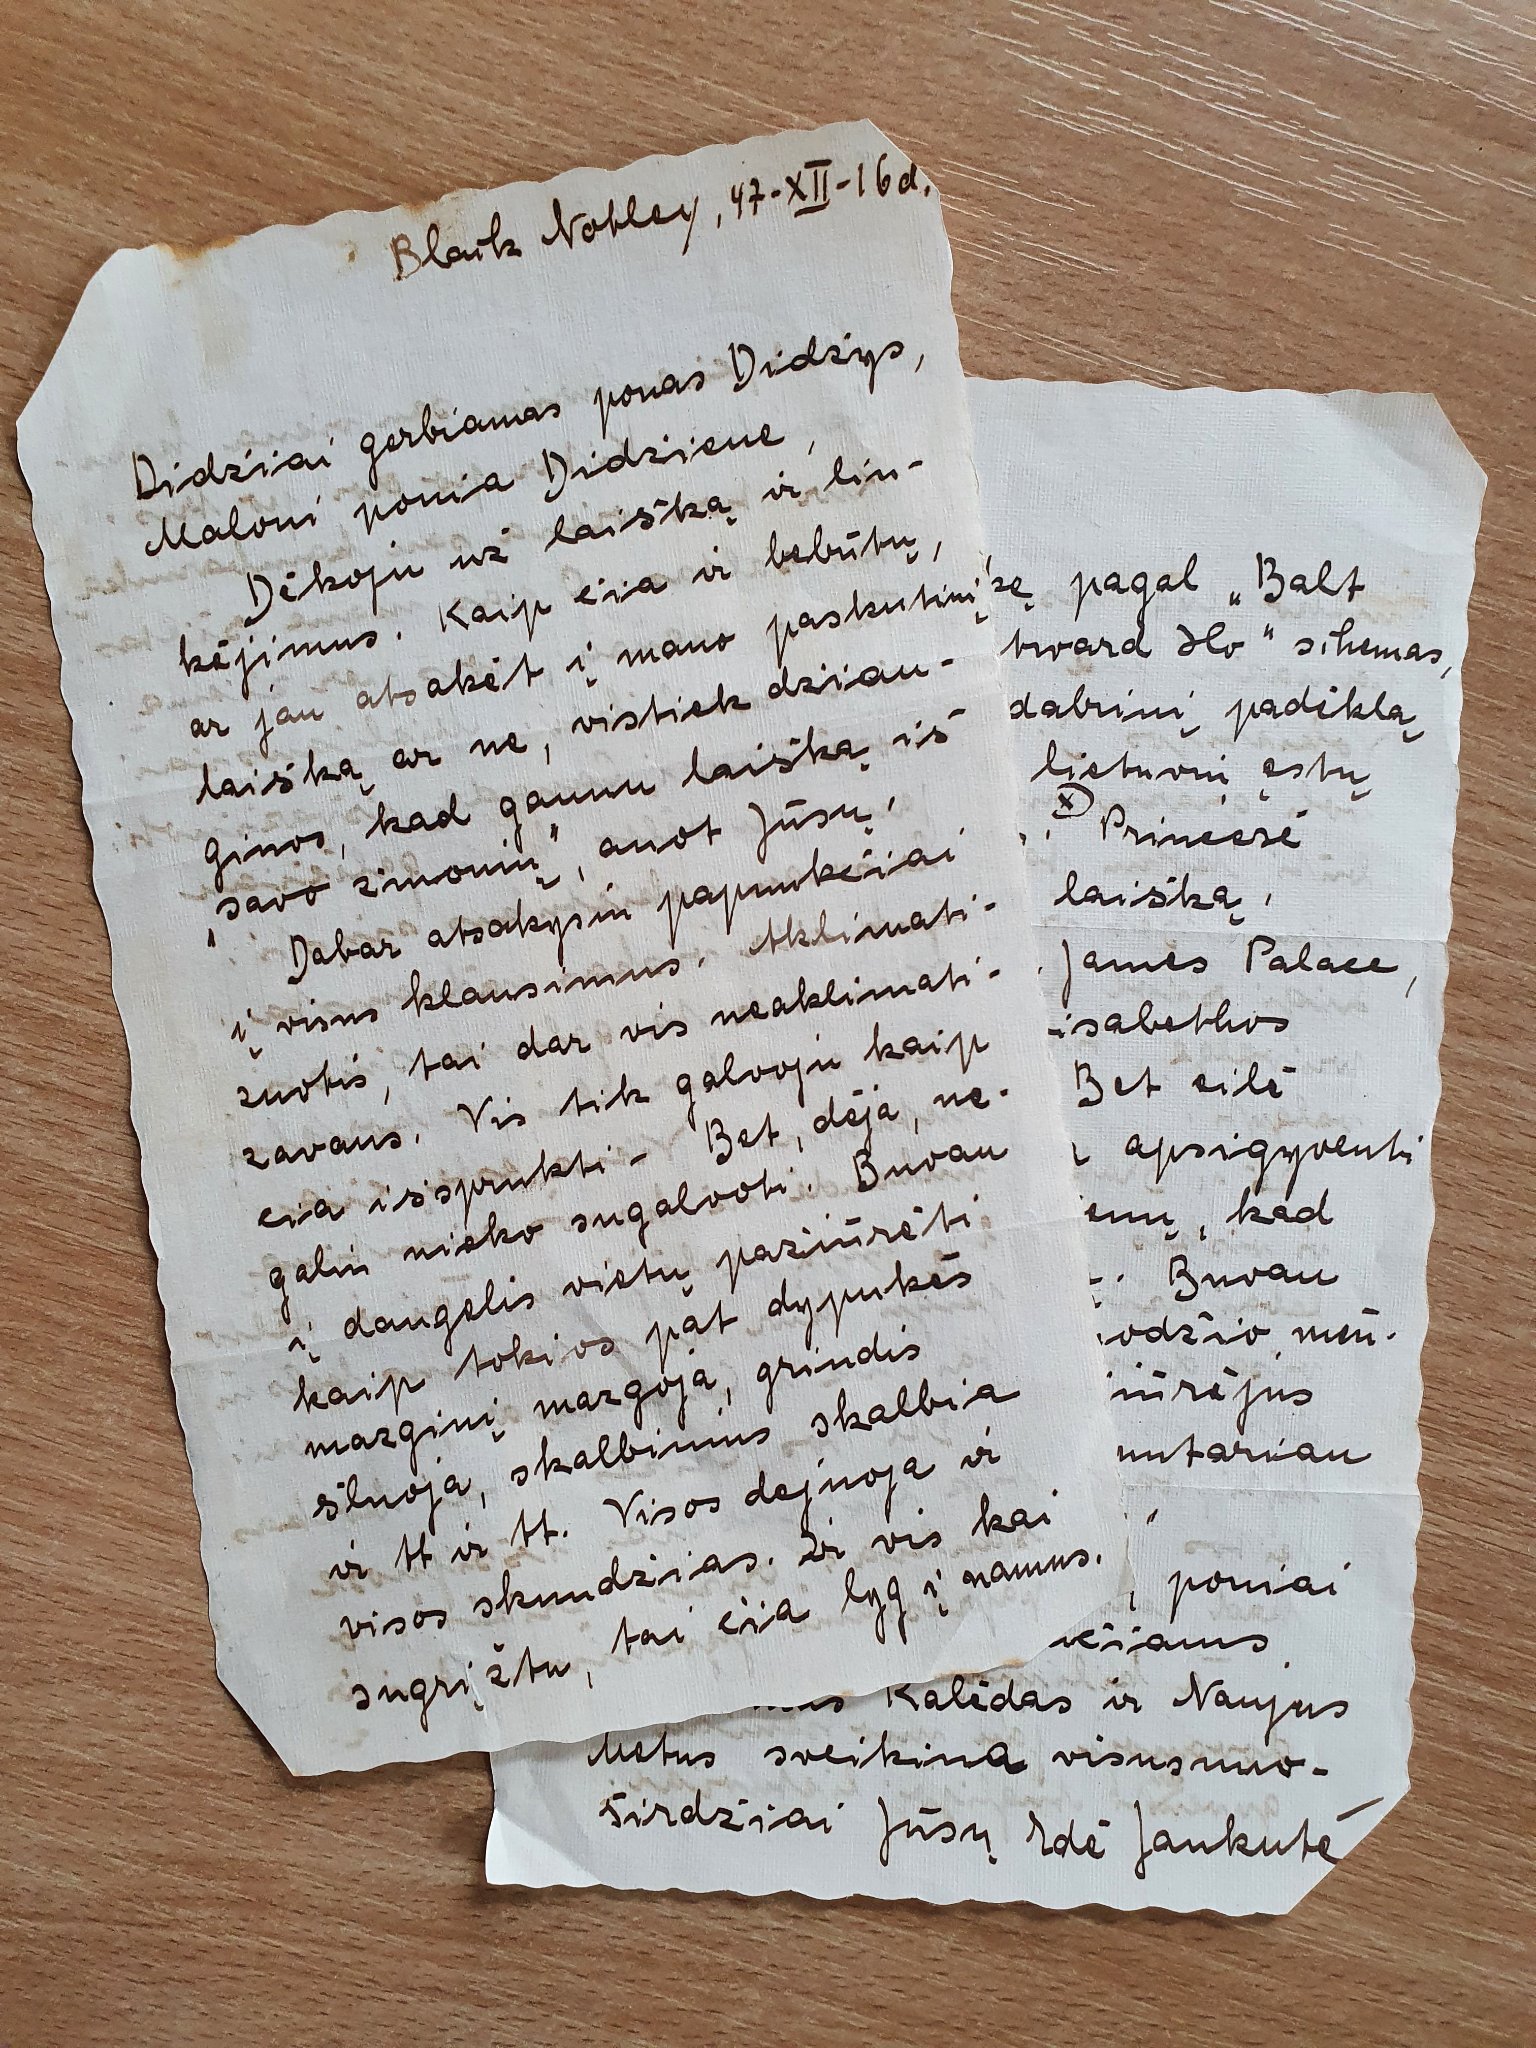 Black Notley, 47-XII-16d.
Didžiai gerbiamas ponas Didžys,
Maloni ponia Didžiene,
Dėkoju už laišką ir lin-
kėjimus. Kaip čia ir bebūtų,
ar jau atsakėt į mano paskutinį
laišką ar ne, vistiek džiau-
giuos, kad gaunu laišką iš
"savo žmonių", anot Jūsų.
Dabar atsakysiu papunkčiai
į visus klausimus. Aklimati-
zuotis, tai dar vis neaklimati-
zavaus. Vis tik galvoju kaip
čia išsprukti - Bet, dėja, ne-
galiu nieko sugalvoti. Buvau
į daugelis vietų pažiūrėti
kaip tokios pat dypukės
mazginį mazgoja, grindis
šluoja, skalbinius skalbia
ir tt ir tt. Visos dejuoja ir
visos skundžias. Ir vis kai
sugrįžtu, tai čia lyg į namus.
pagal „Balt
tward Ho" schemas,
dabrinį padėklą
lietuvių ęstų
x) Princesė
laišką.
James Palace,
isabethos
Bet eilė
apsigyventi
kad
Buvau
odžio mėn.
iūrėjus
nutariau
poniai
čiams
Kalėdas ir Naujus
Metus sveikina visusnuo-
širdžiai Jūsų Idė Jankutė